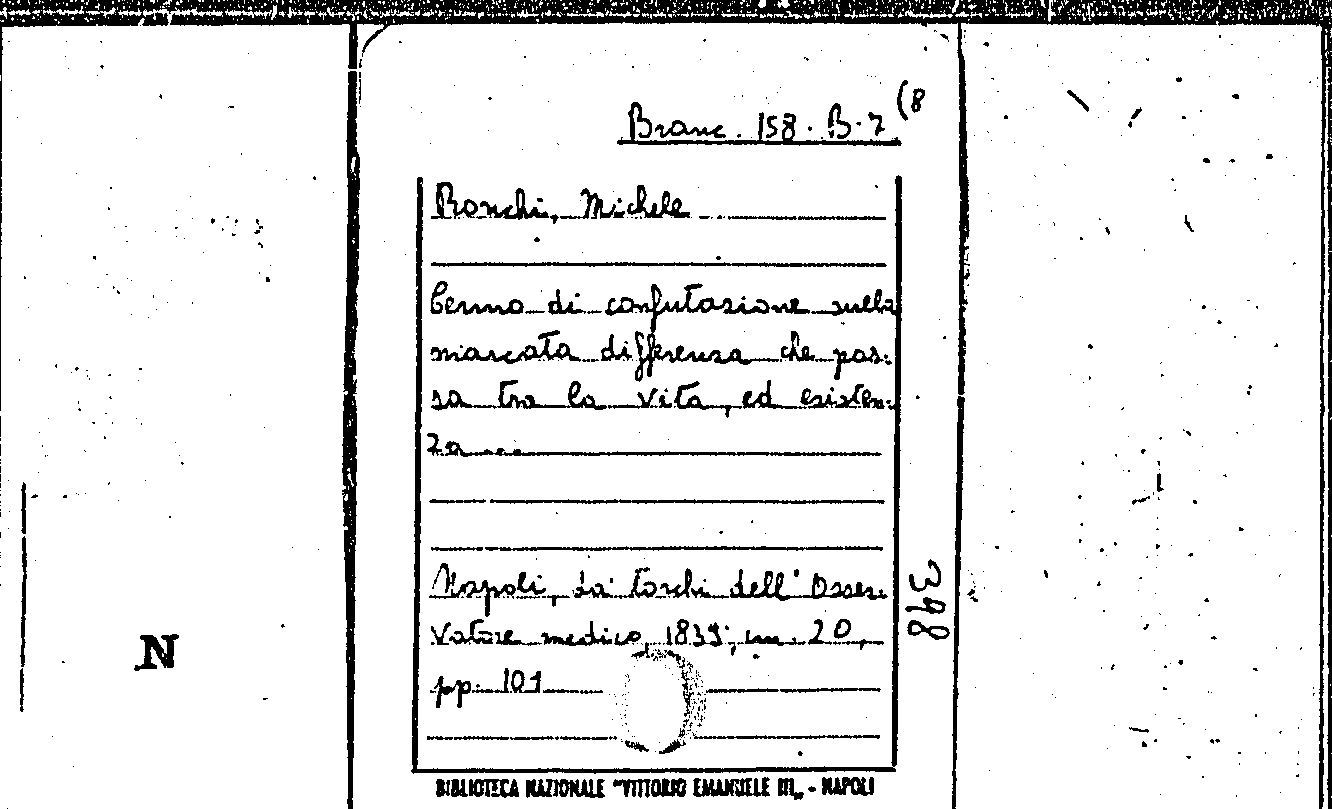 Branc. 158. B. 7 (8
Ronchi, Michele
Cenno di confutazione sulla
marcata differenza che pas-
sa tra la vita, ed esisten-
za...
Napoli, da' torchi dell'Osser-
vatore medico, 1839; cm. 20,
pp. 101
398
N
BIBLIOTECA NAZIONALE "VITTORIO EMANUELE III" - NAPOLI